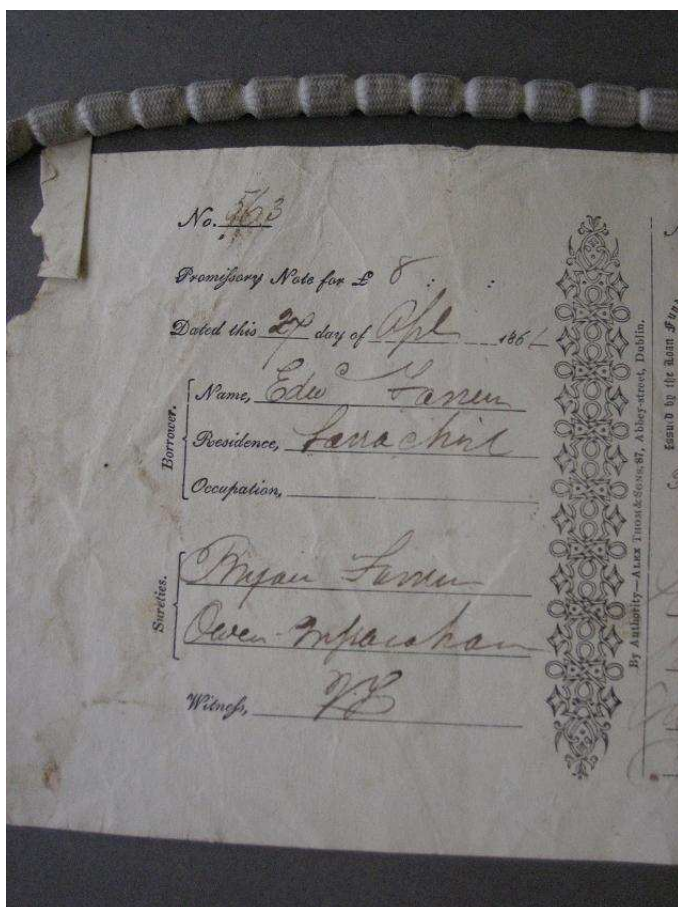 No. 563
Promissory Note for £ 8 : :
Dated this 27 day of Apl 186
Borrower.
Name, Edwd Farren
Residence,
Occupation,
Sureties.
Bryan Farren
Owen
Witness,
By Authority—ALEX THOM & SONS, 87, Abbey-street, Dublin.
Issued by the Loan Fund